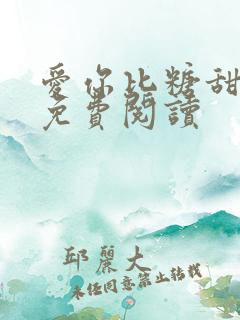 愛你比糖甜
免費閱讀
邱麗大
未經同意禁止轉載